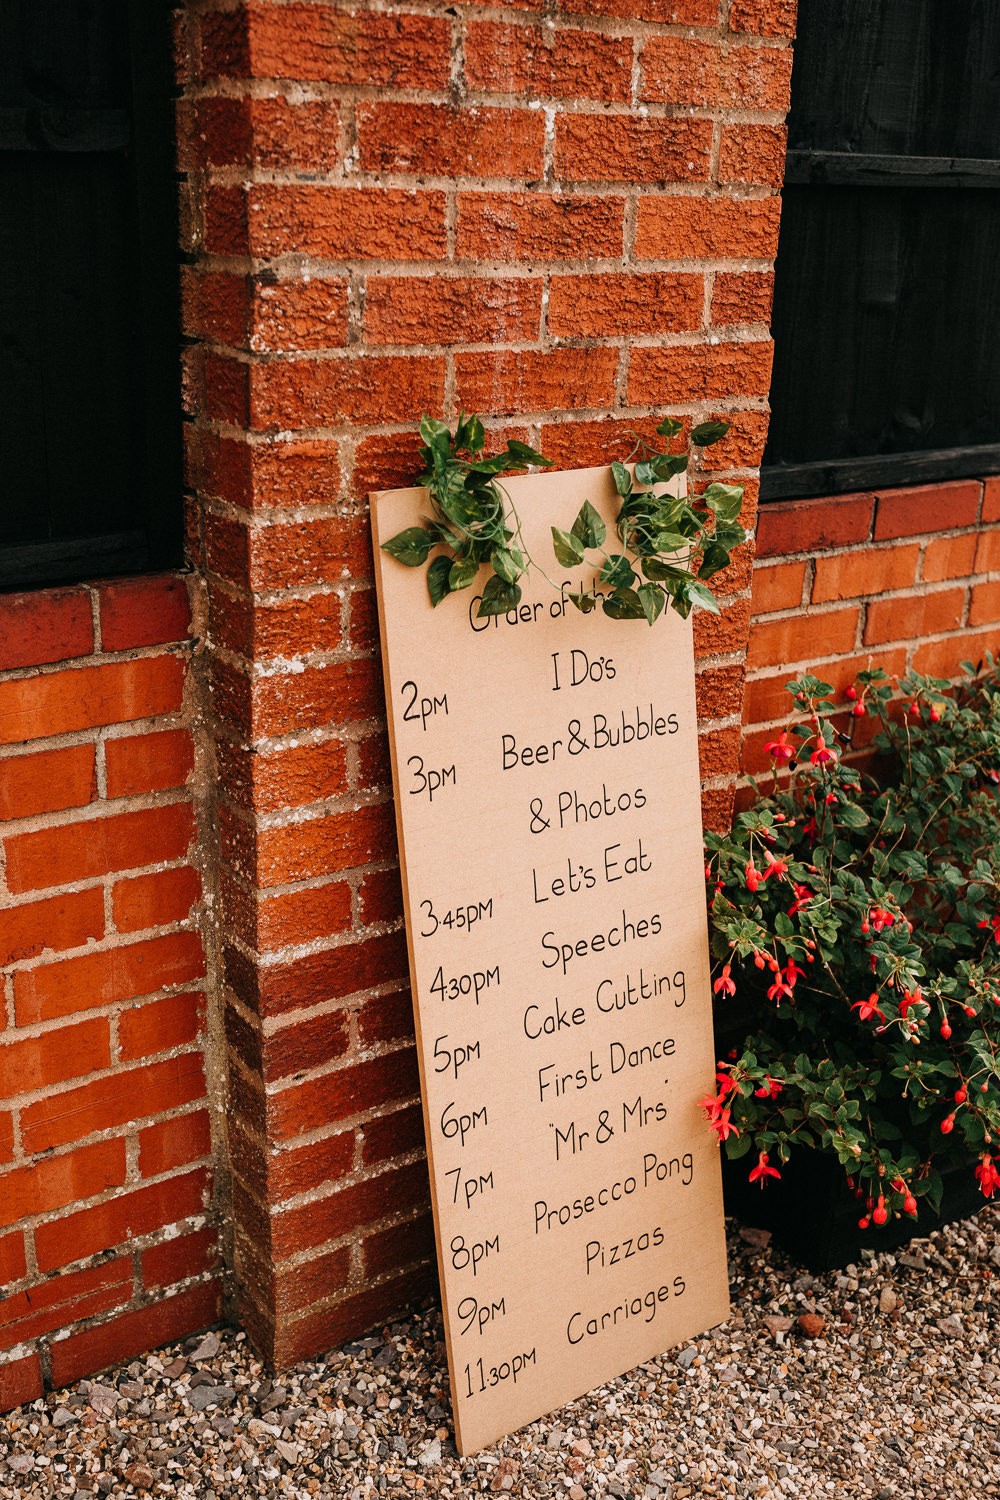 Order of the
2pm I Do's
3pm Beer & Bubbles
& Photos
3.45pm Let's Eat
4.30pm Speeches
5pm Cake Cutting
6pm First Dance
7pm "Mr & Mrs"
8pm Prosecco Pong
9pm Pizzas
11.30pm Carriages